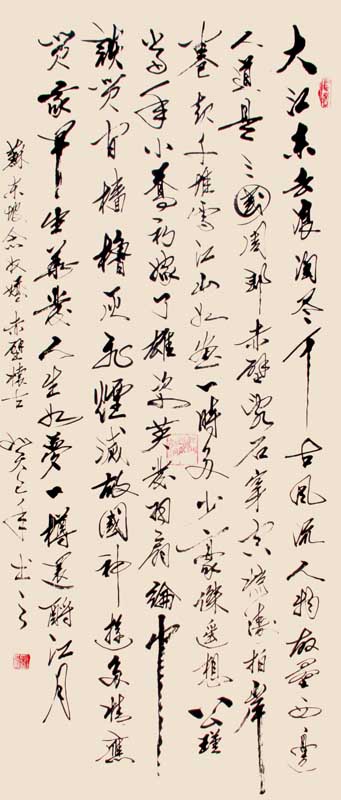 大江东去浪淘尽千古风流人物故垒西邊
人道是三國周郎赤壁乱石穿空惊涛拍岸
卷起千堆雪江山如画一時多少豪傑遥想公瑾
当年小喬初嫁了雄姿英发羽扇綸巾
談笑间樯橹灰飞煙滅故國神遊多情應
笑我早生華发人生如夢一樽還酹江月
蘇东坡念奴娇赤壁懷古 癸巳年